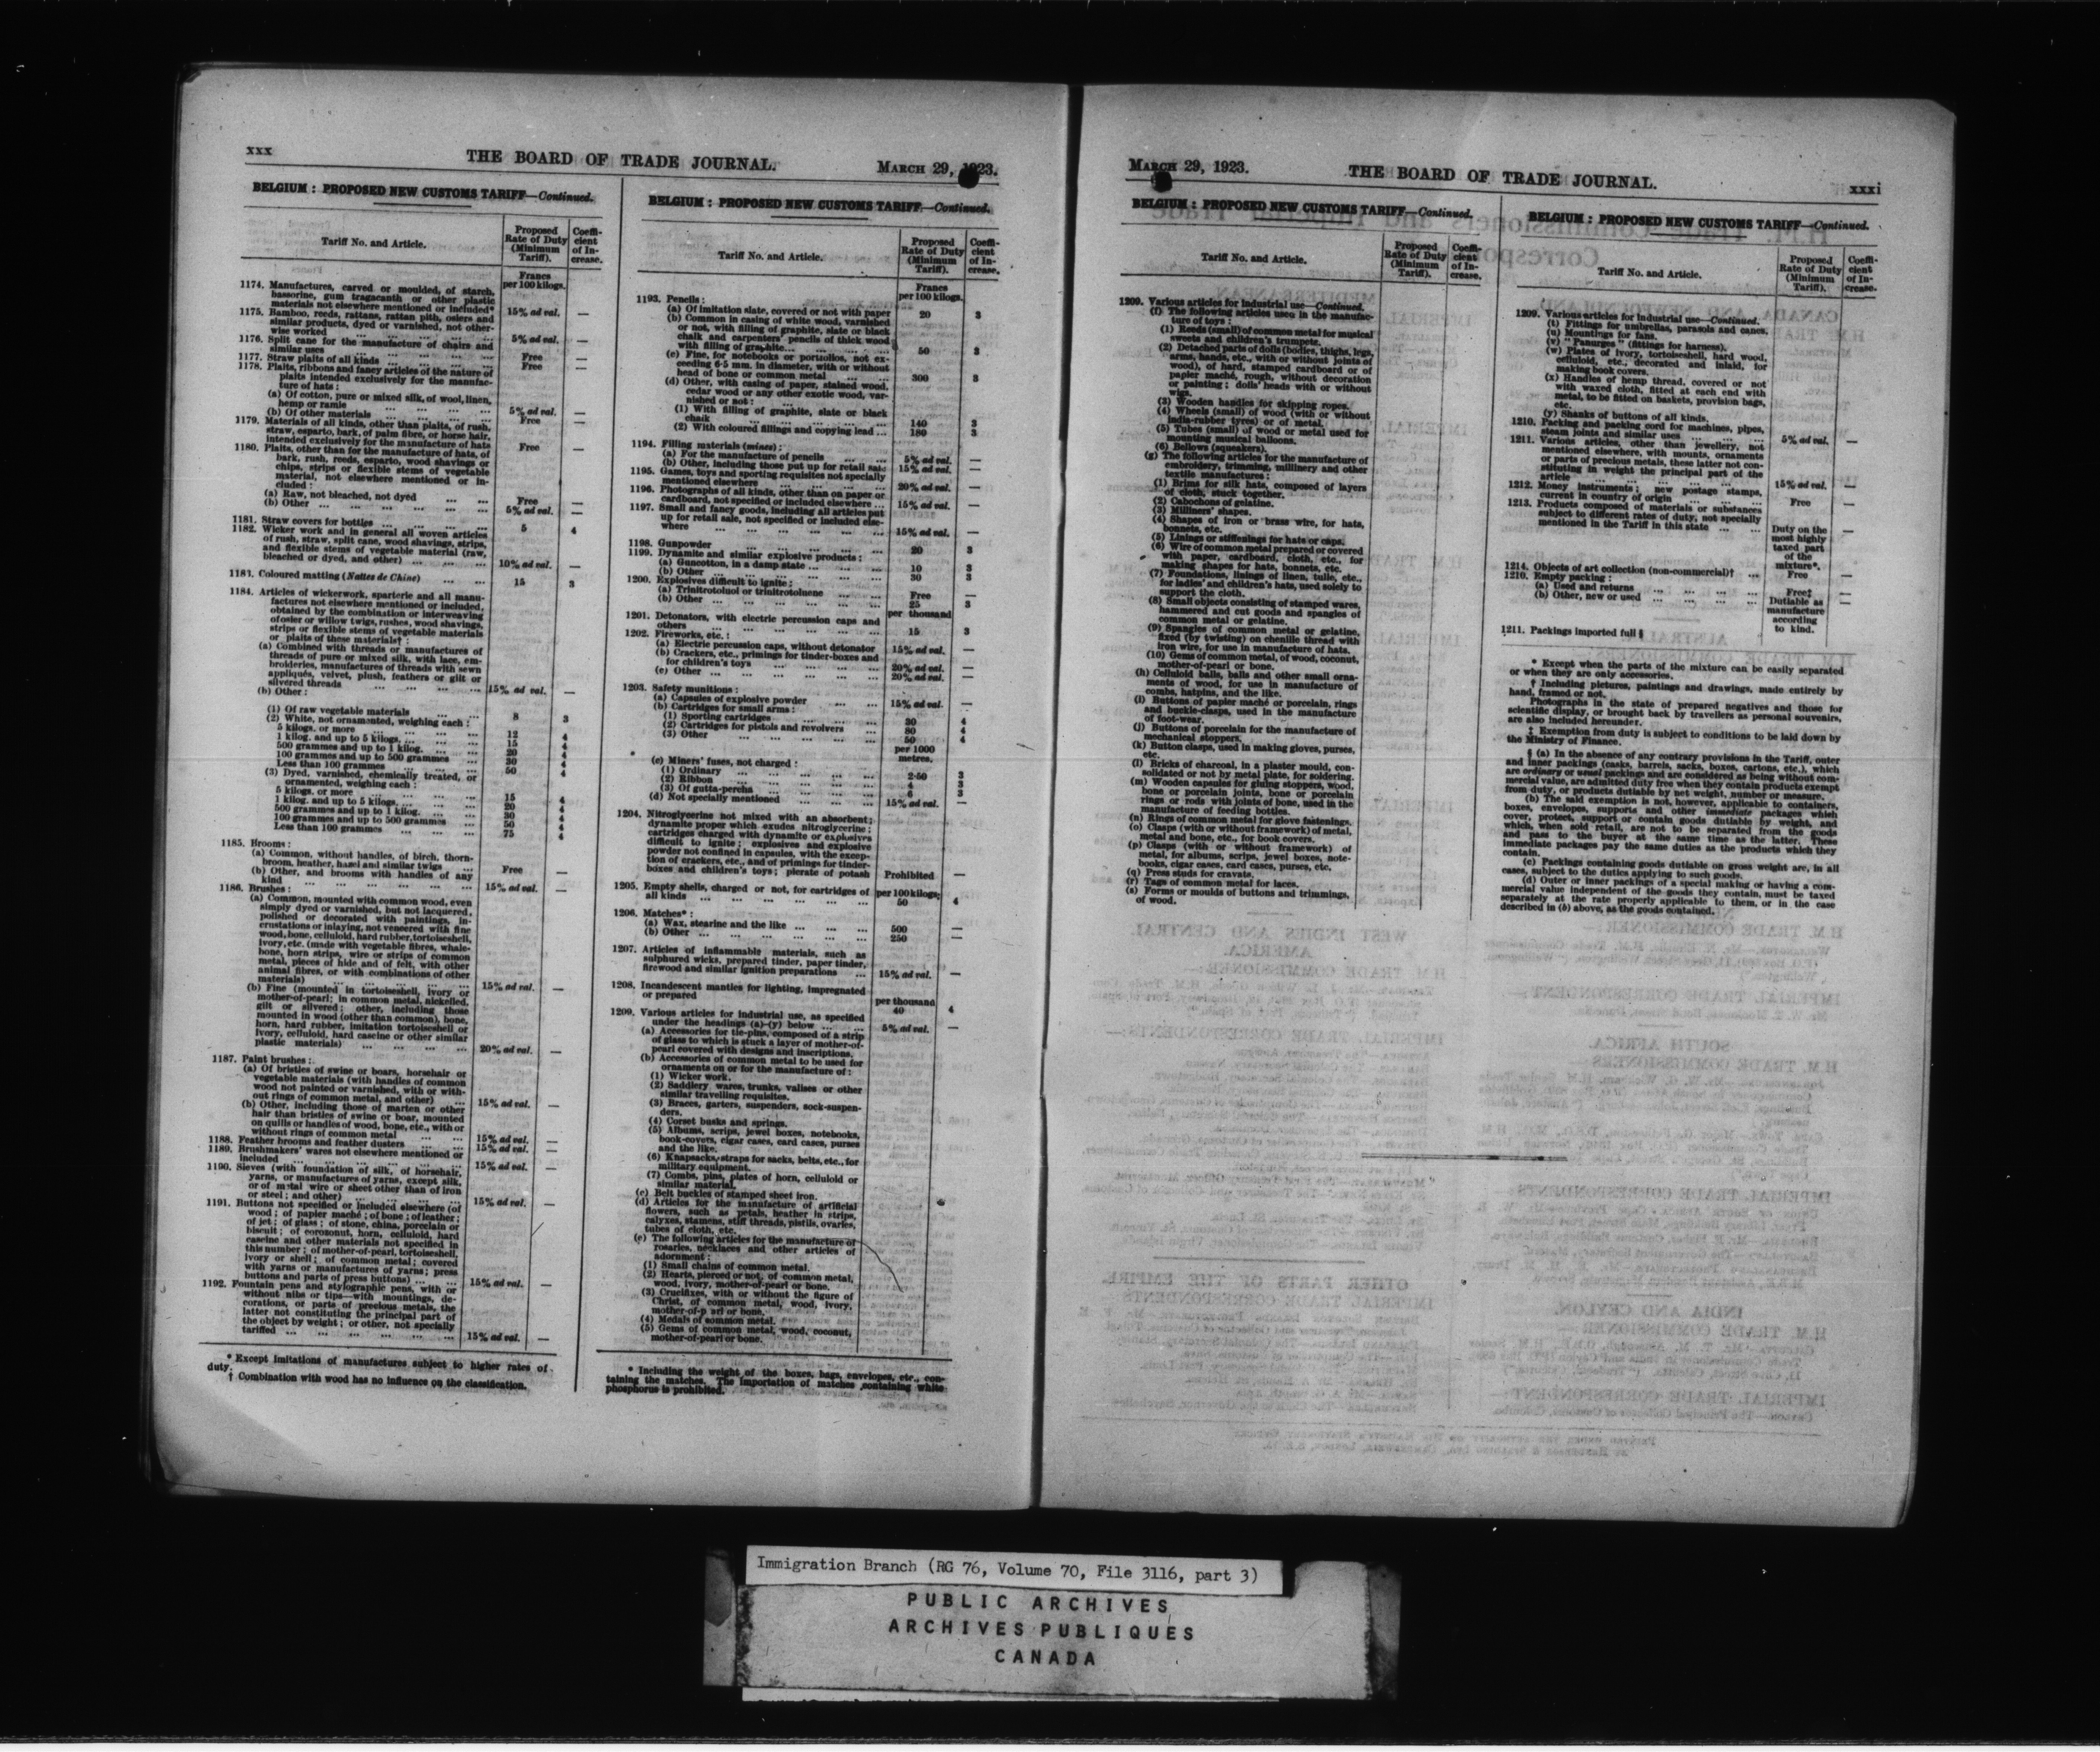 xxx
THE BOARD OF TRADE JOURNAL.
MARCH 29, 1923.
BELGIUM : PROPOSED NEW CUSTOMS TARIFF—Continued.
Tariff No. and Article.
Proposed
Rate of Duty
(Minimum
Tariff).
Coeffi-
cient
of In-
crease.
Francs
per 100 kilogs.
1174. Manufactures, carved or moulded, of starch,
bassorine, gum tragacanth or other plastic
materials not elsewhere mentioned or included* 15% ad val. —
1175. Bamboo, reeds, rattans, rattan pith, osiers and
similar products, dyed or varnished, not other-
wise worked ... ... ... 5% ad val. —
1176. Split cane for the manufacture of chairs and
similar uses ... ... ... Free —
1177. Straw plaits of all kinds ... ... ... Free —
1178. Plaits, ribbons and fancy articles of the nature of
plaits intended exclusively for the manufac-
ture of hats :
(a) Of cotton, pure or mixed silk, of wool, linen,
hemp or ramie ... ... ... 5% ad val. —
(b) Of other materials ... ... ... Free —
1179. Materials of all kinds, other than plaits, of rush,
straw, esparto, bark, of palm fibre, or horse hair,
intended exclusively for the manufacture of hats Free —
1180. Plaits, other than for the manufacture of hats, of
bark, rush, reeds, esparto, wood shavings or
chips, strips or flexible stems of vegetable
material, not elsewhere mentioned or in-
cluded :
(a) Raw, not bleached, not dyed ... ... Free —
(b) Other ... ... ... 5% ad val. —
1181. Straw covers for bottles ... ... ... 5 4
1182. Wicker work and in general all woven articles
of rush, straw, split cane, wood shavings, strips,
and flexible stems of vegetable material (raw,
bleached or dyed, and other) ... ... 10% ad val. —
1183. Coloured matting (Nattes de Chine) ... ... 15 3
1184. Articles of wickerwork, sparterie and all manu-
factures not elsewhere mentioned or included,
obtained by the combination or interweaving
of osier or willow twigs, rushes, wood shavings,
strips or flexible stems of vegetable materials
or plaits of these materials† :
(a) Combined with threads or manufactures of
threads of pure or mixed silk, with lace, em-
broideries, manufactures of threads with sewn
appliqués, velvet, plush, feathers or gilt or
silvered threads ... ... ... 15% ad val. —
(b) Other :
(1) Of raw vegetable materials ... ... 8 3
(2) White, not ornamented, weighing each :
5 kilogs. or more ... ... ... 12 4
1 kilog. and up to 5 kilogs. ... ... ... 15 4
500 grammes and up to 1 kilog. ... ... 20 4
100 grammes and up to 500 grammes ... 30 4
Less than 100 grammes ... ... ... 50 4
(3) Dyed, varnished, chemically treated, or
ornamented, weighing each :
5 kilogs. or more ... ... ... 15 4
1 kilog. and up to 5 kilogs. ... ... ... 20 4
500 grammes and up to 1 kilog. ... ... 30 4
100 grammes and up to 500 grammes ... 50 4
Less than 100 grammes ... ... ... 75 4
1185. Brooms :
(a) Common, without handles, of birch, thorn-
broom, heather, hazel and similar twigs ... Free —
(b) Other, and brooms with handles of any
kind ... ... ... 15% ad val. —
1186. Brushes :
(a) Common, mounted with common wood, even
simply dyed or varnished, but not lacquered,
polished or decorated with paintings, in-
crustations or inlaying, not veneered with fine
wood, bone, celluloid, hard rubber, tortoiseshell,
ivory, etc. (made with vegetable fibres, whale-
bone, horn strips, wire or strips of common
metal, pieces of hide and of felt, with other
animal fibres, or with combinations of other
materials) ... ... ... 15% ad val. —
(b) Fine (mounted in tortoiseshell, ivory or
mother-of-pearl; in common metal, nickelled,
gilt or silvered; other, including those
mounted in wood (other than common), bone,
horn, hard rubber, imitation tortoiseshell or
ivory, celluloid, hard caseine or other similar
plastic materials) ... ... ... 20% ad val. —
1187. Paint brushes :
(a) Of bristles of swine or boars, horsehair or
vegetable materials (with handles of common
wood not painted or varnished, with or with-
out rings of common metal, and other) ... 15% ad val. —
(b) Other, including those of marten or other
hair than bristles of swine or boar, mounted
on quills or handles of wood, bone, etc., with or
without rings of common metal ... ... 15% ad val. —
1188. Feather brooms and feather dusters ... ... 15% ad val. —
1189. Brushmakers' wares not elsewhere mentioned or
included ... ... ... 15% ad val. —
1190. Sieves (with foundation of silk, of horsehair,
yarns, or manufactures of yarns, except silk,
or of metal wire or sheet other than of iron
or steel; and other) ... ... ... 15% ad val. —
1191. Buttons not specified or included elsewhere (of
wood; of papier maché; of bone; of leather;
of jet; of glass; of stone, china, porcelain or
biscuit; of corozonut, horn, celluloid, hard
caseine and other materials not specified in
this number; of mother-of-pearl, tortoiseshell,
ivory or shell; of common metal; covered
with yarns or manufactures of yarns; press
buttons and parts of press buttons) ... ... 15% ad val. —
1192. Fountain pens and stylographic pens, with or
without nibs or tips—with mountings, de-
corations, or parts of precious metals, the
latter not constituting the principal part of
the object by weight; or other, not specially
tariffed ... ... ... 15% ad val. —
* Except imitations of manufactures subject to higher rates of
duty.
† Combination with wood has no influence on the classification.
BELGIUM : PROPOSED NEW CUSTOMS TARIFF—Continued.
Tariff No. and Article.
Proposed
Rate of Duty
(Minimum
Tariff).
Coeffi-
cient
of In-
crease.
Francs
per 100 kilogs.
1193. Pencils :
(a) Of imitation slate, covered or not with paper 20 3
(b) Common in casing of white wood, varnished
or not, with filling of graphite, slate or black
chalk and carpenters' pencils of thick wood
with filling of graphite... ... ... 50 3
(c) Fine, for notebooks or portfolios, not ex-
ceeding 6·5 mm. in diameter, with or without
head of bone or common metal ... ... 300 3
(d) Other, with casing of paper, stained wood,
cedar wood or any other exotic wood, var-
nished or not :
(1) With filling of graphite, slate or black
chalk ... ... ... 140 3
(2) With coloured fillings and copying lead ... 180 3
1194. Filling materials (mines) :
(a) For the manufacture of pencils ... ... 5% ad val. —
(b) Other, including those put up for retail sale 15% ad val. —
1195. Games, toys and sporting requisites not specially
mentioned elsewhere ... ... ... 20% ad val. —
1196. Photographs of all kinds, other than on paper or
cardboard, not specified or included elsewhere ... 15% ad val. —
1197. Small and fancy goods, including all articles put
up for retail sale, not specified or included else-
where ... ... ... 15% ad val. —
1198. Gunpowder ... ... ... 20 3
1199. Dynamite and similar explosive products :
(a) Guncotton, in a damp state ... ... ... 10 3
(b) Other ... ... ... 30 3
1200. Explosives difficult to ignite :
(a) Trinitrotoluol or trinitrotoluene ... ... Free —
(b) Other ... ... ... 25 3
per thousand
1201. Detonators, with electric percussion caps and
others ... ... ... 15 3
1202. Fireworks, etc. :
(a) Electric percussion caps, without detonator 15% ad val. —
(b) Crackers, etc., primings for tinder-boxes and
for children's toys ... ... ... 20% ad val. —
(c) Other ... ... ... 20% ad val. —
1203. Safety munitions :
(a) Capsules of explosive powder ... ... 15% ad val. —
(b) Cartridges for small arms :
(1) Sporting cartridges ... ... ... 30 4
(2) Cartridges for pistols and revolvers ... 80 4
(3) Other ... ... ... 50 4
per 1000
metres.
(c) Miners' fuses, not charged :
(1) Ordinary ... ... ... 2·50 3
(2) Ribbon ... ... ... 4 3
(3) Of gutta-percha ... ... ... 6 3
(d) Not specially mentioned ... ... ... 15% ad val. —
1204. Nitroglycerine not mixed with an absorbent;
dynamite proper which exudes nitroglycerine;
cartridges charged with dynamite or explosives
difficult to ignite; explosives and explosive
powder not confined in capsules, with the excep-
tion of crackers, etc., and of primings for tinder-
boxes and children's toys; picrate of potash Prohibited —
1205. Empty shells, charged or not, for cartridges of per 100 kilogs;
all kinds ... ... ... 50 4
1206. Matches* :
(a) Wax, stearine and the like ... ... ... 500 —
(b) Other ... ... ... 250 —
1207. Articles of inflammable materials, such as
sulphured wicks, prepared tinder, paper tinder,
firewood and similar ignition preparations ... 15% ad val. —
1208. Incandescent mantles for lighting, impregnated
or prepared
per thousand
40 4
1209. Various articles for industrial use, as specified
under the headings (a)-(y) below ... ... 5% ad val. —
(a) Accessories for tie-pins, composed of a strip
of glass to which is stuck a layer of mother-of-
pearl covered with designs and inscriptions.
(b) Accessories of common metal to be used for
ornaments on or for the manufacture of :
(1) Wicker work.
(2) Saddlery wares, trunks, valises or other
similar travelling requisites.
(3) Braces, garters, suspenders, sock-suspen-
ders.
(4) Corset busks and springs.
(5) Albums, scrips, jewel boxes, notebooks,
book-covers, cigar cases, card cases, purses
and the like.
(6) Knapsacks, straps for sacks, belts, etc., for
military equipment.
(7) Combs, pins, plates of horn, celluloid or
similar material.
(c) Belt buckles of stamped sheet iron.
(d) Articles for the manufacture of artificial
flowers, such as petals, heather in strips,
calyxes, stamens, stiff threads, pistils, ovaries,
tubes of cloth, etc.
(e) The following articles for the manufacture of
rosaries, necklaces and other articles of
adornment :
(1) Small chains of common metal.
(2) Hearts, pierced or not, of common metal,
wood, ivory, mother-of-pearl or bone.
(3) Crucifixes, with or without the figure of
Christ, of common metal, wood, ivory,
mother-of-p arl or bone.
(4) Medals of common metal.
(5) Gems of common metal, wood, coconut,
mother-of-pearl or bone.
* Including the weight of the boxes, bags, envelopes, etc., con-
taining the matches. The importation of matches containing white
phosphorus is prohibited.
MARCH 29, 1923.
THE BOARD OF TRADE JOURNAL.
xxxi
BELGIUM : PROPOSED NEW CUSTOMS TARIFF—Continued.
Tariff No. and Article.
Proposed
Rate of Duty
(Minimum
Tariff).
Coeffi-
cient
of In-
crease.
1209. Various articles for industrial use—Continued.
(f) The following articles uses in the manufac-
ture of toys :
(1) Reeds (small) of common metal for musical
sweets and children's trumpets.
(2) Detached parts of dolls (bodies, thighs, legs,
arms, hands, etc., with or without joints of
wood), of hard, stamped cardboard or of
papier maché, rough, without decoration
or painting; dolls' heads with or without
wigs.
(3) Wooden handles for skipping ropes.
(4) Wheels (small) of wood (with or without
india-rubber tyres) or of metal.
(5) Tubes (small) of wood or metal used for
mounting musical balloons.
(6) Bellows (squeakers).
(g) The following articles for the manufacture of
embroidery, trimming, millinery and other
textile manufactures :
(1) Brims for silk hats, composed of layers
of cloth, stuck together.
(2) Cabochons of gelatine.
(3) Milliners' shapes.
(4) Shapes of iron or brass wire, for hats,
bonnets, etc.
(5) Linings or stiffenings for hats or caps.
(6) Wire of common metal prepared or covered
with paper, cardboard, cloth, etc., for
making shapes for hats, bonnets, etc.
(7) Foundations, linings of linen, tulle, etc.,
for ladies' and children's hats, used solely to
support the cloth.
(8) Small objects consisting of stamped wares,
hammered and cut goods and spangles of
common metal or gelatine.
(9) Spangles of common metal or gelatine,
fixed (by twisting) on chenille thread with
iron wire, for use in manufacture of hats.
(10) Gems of common metal, of wood, coconut,
mother-of-pearl or bone.
(h) Celluloid balls, balls and other small orna-
ments of wood, for use in manufacture of
combs, hatpins, and the like.
(i) Buttons of papier maché or porcelain, rings
and buckle-clasps, used in the manufacture
of foot-wear.
(j) Buttons of porcelain for the manufacture of
mechanical stoppers.
(k) Button clasps, used in making gloves, purses,
etc.
(l) Bricks of charcoal, in a plaster mould, con-
solidated or not by metal plate, for soldering.
(m) Wooden capsules for gluing stoppers, wood,
bone or porcelain joints, bone or porcelain
rings or rods with joints of bone, used in the
manufacture of feeding bottles.
(n) Rings of common metal for glove fastenings.
(o) Clasps (with or without framework) of metal,
metal and bone, etc., for book covers.
(p) Clasps (with or without framework) of
metal, for albums, scrips, jewel boxes, note-
books, cigar cases, card cases, purses, etc.
(q) Press studs for cravats.
(r) Tags of common metal for laces.
(s) Forms or moulds of buttons and trimmings,
of wood.
BELGIUM : PROPOSED NEW CUSTOMS TARIFF—Continued.
Tariff No. and Article.
Proposed
Rate of Duty
(Minimum
Tariff).
Coeffi-
cient
of In-
crease.
1209. Various articles for industrial use—Continued.
(t) Fittings for umbrellas, parasols and canes.
(u) Mountings for fans.
(v) " Panurges " (fittings for harness).
(w) Plates of ivory, tortoiseshell, hard wood,
celluloid, etc., decorated and inlaid, for
making book covers.
(x) Handles of hemp thread, covered or not
with waxed cloth, fitted at each end with
metal, to be fitted on baskets, provision bags,
etc.
(y) Shanks of buttons of all kinds.
1210. Packing and packing cord for machines, pipes,
steam joints and similar uses ... ... ... 5% ad val. —
1211. Various articles, other than jewellery, not
mentioned elsewhere, with mounts, ornaments
or parts of precious metals, these latter not con-
stituting in weight the principal part of the
article ... ... ... 15% ad val. —
1212. Money instruments; new postage stamps,
current in country of origin ... ... ... Free —
1213. Products composed of materials or substances
subject to different rates of duty, not specially
mentioned in the Tariff in this state ... Duty on the
most highly
taxed part
of the
mixture*.
1214. Objects of art collection (non-commercial)† ... Free —
1210. Empty packing :
(a) Used and returns ... ... ... Free‡ —
(b) Other, new or used ... ... ... Dutiable as —
manufacture
according
to kind.
1211. Packings imported full §
* Except when the parts of the mixture can be easily separated
or when they are only accessories.
† Including pictures, paintings and drawings, made entirely by
hand, framed or not.
Photographs in the state of prepared negatives and those for
scientific display, or brought back by travellers as personal souvenirs,
are also included hereunder.
‡ Exemption from duty is subject to conditions to be laid down by
the Ministry of Finance.
§ (a) In the absence of any contrary provisions in the Tariff, outer
and inner packings (casks, barrels, sacks, boxes, cartons, etc.), which
are ordinary or usual packings and are considered as being without com-
mercial value, are admitted duty free when they contain products exempt
from duty, or products dutiable by weight, number or measure.
(b) The said exemption is not, however, applicable to containers,
boxes, envelopes, supports and other immediate packages which
cover, protect, support or contain goods dutiable by weight, and
which, when sold retail, are not to be separated from the goods
and pass to the buyer at the same time as the latter. These
immediate packages pay the same duties as the products which they
contain.
(c) Packings containing goods dutiable on gross weight are, in all
cases, subject to the duties applying to such goods.
(d) Outer or inner packings of a special making or having a com-
mercial value independent of the goods they contain, must be taxed
separately at the rate properly applicable to them, or in the case
described in (b) above, as the goods contained.
Immigration Branch (RG 76, Volume 70, File 3116, part 3)
PUBLIC ARCHIVES
ARCHIVES PUBLIQUES
CANADA